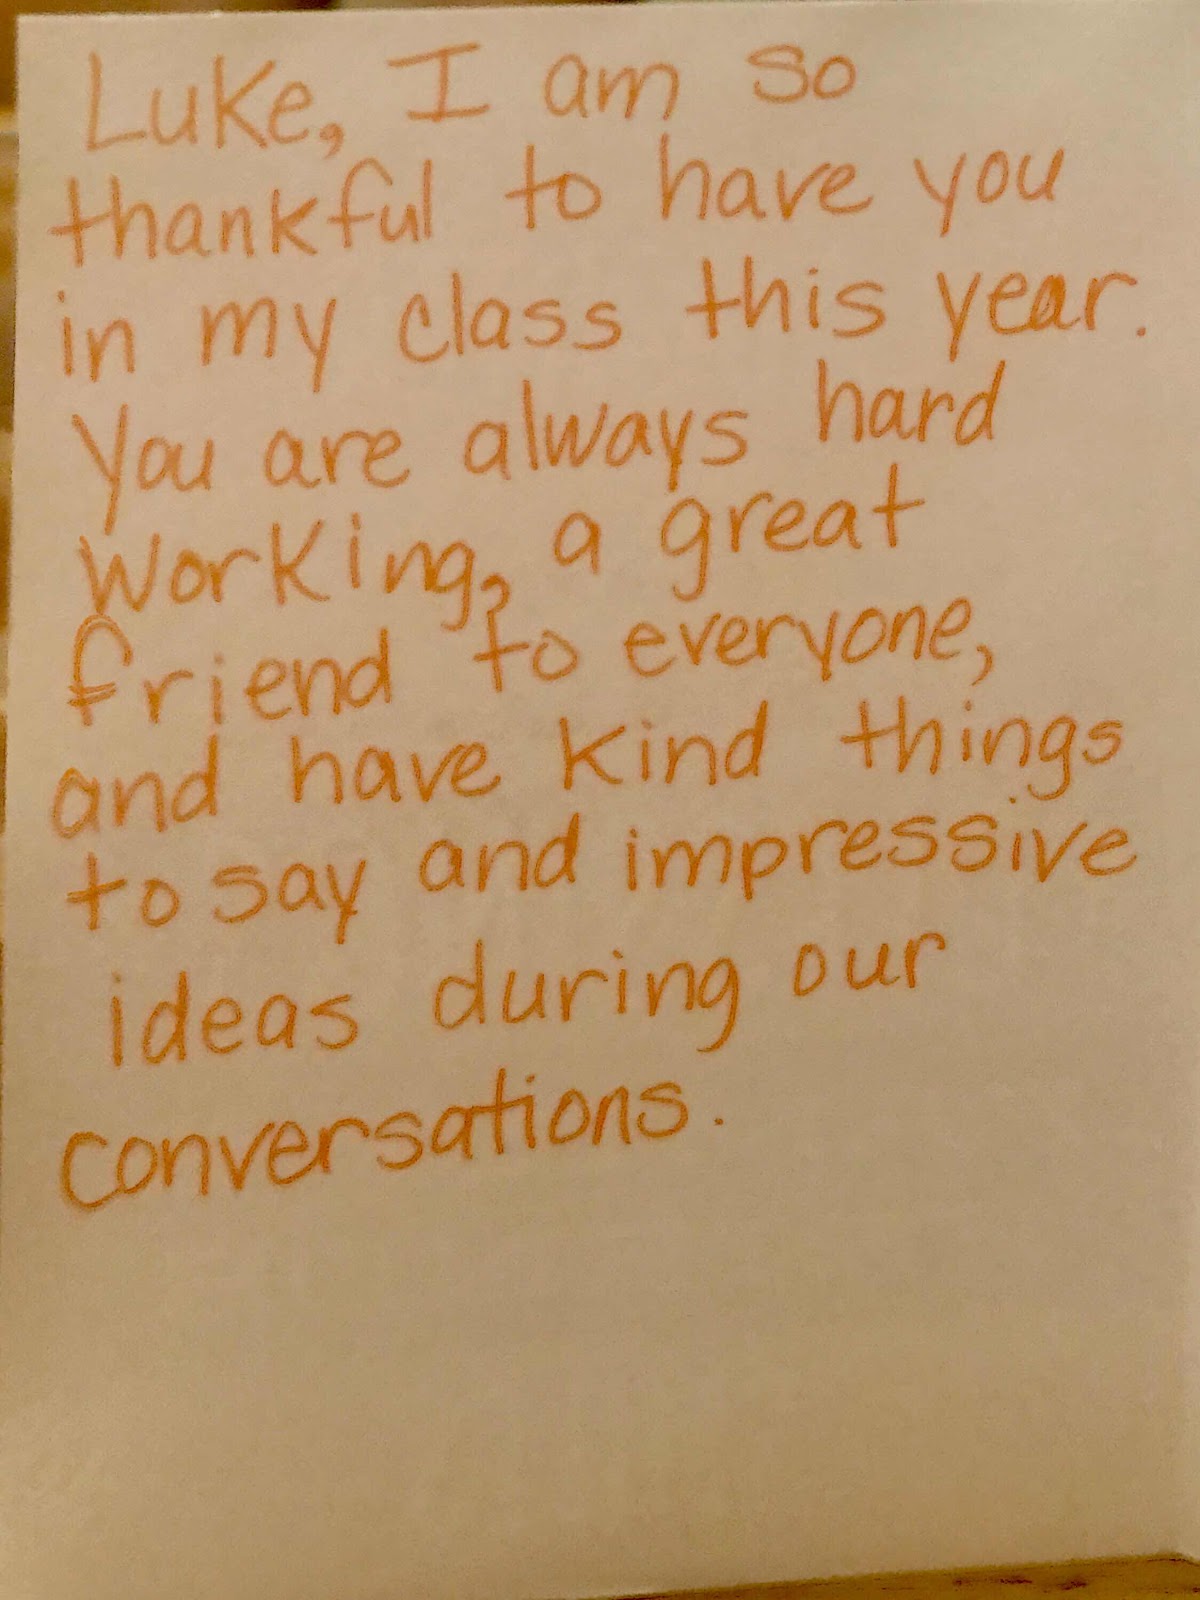 Luke, I am so
thankful to have you
in my class this year.
You are always hard
working, a great
friend to everyone,
and have kind things
to say and impressive
ideas during our
conversations.